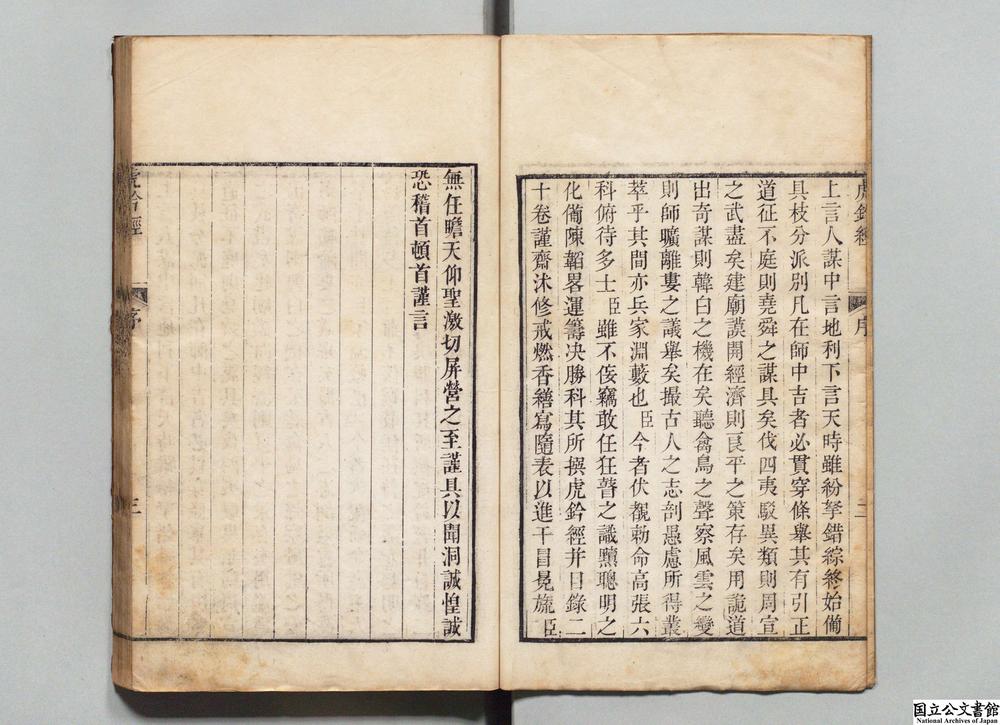 虎鈐經
序
二
上言人謀中言地利下言天時雖紛拏錯綜終始備
具枝分派別凡在師中吉者必貫穿條舉其有引正
道征不庭則堯舜之謀具矣伐四夷駁異類則周宣
之武盡矣建廟謨開經濟則良平之策存矣用詭道
出奇謀則韓白之機在矣聽禽鳥之聲察風雲之變
則師曠離婁之議舉矣撮古人之志剖愚慮所得叢
萃乎其間亦兵家淵藪也臣今者伏覩勅命高張六
科俯待多士臣雖不侫竊敢任狂瞽之識黷聰明之
化備陳韜畧運籌决勝科其所撰虎鈐經并目錄二
十卷謹齋沐修戒燃香繕寫隨表以進干冒冕旒臣
無任瞻天仰聖激切屏營之至謹具以聞洞誠惶誠
恐稽首頓首謹言
虎鈐經
序
三
国立公文書館
National Archives of Japan